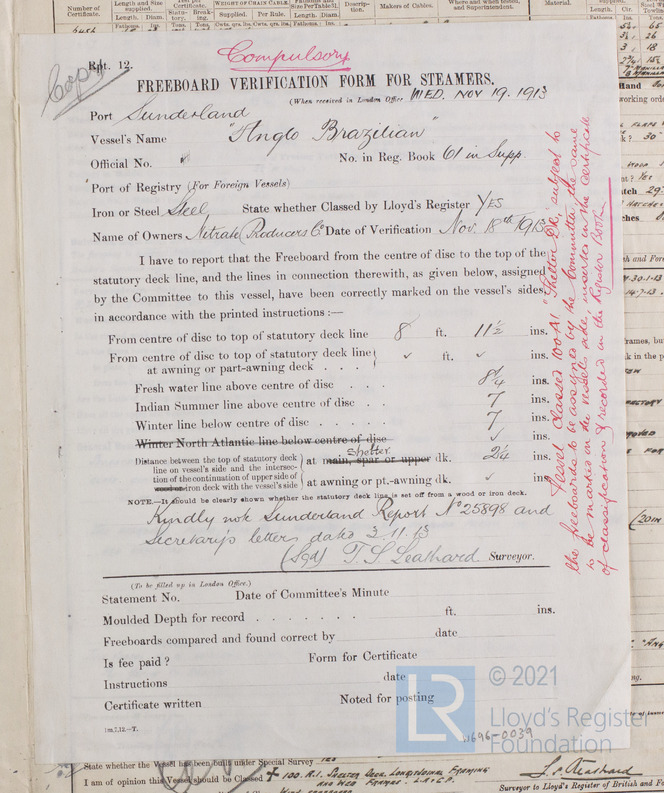 Number of Certificate.
Length and Size supplied.
Length. Diam.
Certificate.
Statutory. Breaking.
WEIGHT OF CHAIN CABLE.
Supplied. Per Rule.
Length. Diam.
Description.
Makers of Cables.
Where and when tested, and Superintendent.
Material.
Length. Cir.
Copy
Rpt. 12.
Compulsory
FREEBOARD VERIFICATION FORM FOR STEAMERS.
(When received in London Office WED. NOV 19. 1913
Port Sunderland
Vessel's Name "Anglo Brazilian"
Official No. No. in Reg. Book 61 in Supp.
Port of Registry (For Foreign Vessels)
Iron or Steel Steel State whether Classed by Lloyd's Register YES
Name of Owners Nitrate Producers Co Date of Verification Nov. 18th 1913
I have to report that the Freeboard from the centre of disc to the top of the
statutory deck line, and the lines in connection therewith, as given below, assigned
by the Committee to this vessel, have been correctly marked on the vessel's sides,
in accordance with the printed instructions :—
From centre of disc to top of statutory deck line 8 ft. 11½ ins.
From centre of disc to top of statutory deck line
at awning or part-awning deck . . . ✓ ft. ✓ ins.
Fresh water line above centre of disc . . . 8¼ ins.
Indian Summer line above centre of disc . . 7 ins.
Winter line below centre of disc . . . . 7 ins.
Winter North Atlantic line below centre of disc ✓ ins.
Distance between the top of statutory deck
line on vessel's side and the intersec-
tion of the continuation of upper side of
wood or iron deck with the vessel's side
at main, spar or upper dk. Shelter 2¼ ins.
at awning or pt.-awning dk. ✓ ins.
NOTE.—It should be clearly shown whether the statutory deck line is set off from a wood or iron deck.
Kindly note Sunderland Report No 25898 and
Secretary's letters dated 3.11.13
(Sgd) T. S. Leathard Surveyor.
Vessel classed 100A1 "Shelter Dk, subject to
the freeboards to be assigned by the Committee, the same
to be marked on the vessels side, inserted in the Certificate
of classification & recorded in the Register Book
(To be filled up in London Office.)
Statement No. Date of Committee's Minute
Moulded Depth for record . . . . . . . ft. ins.
Freeboards compared and found correct by date
Is fee paid ? Form for Certificate
Instructions date
Certificate written Noted for posting
1m,7,12.—T.
W696-0039
LR © 2021
Lloyd's Register
Foundation
State whether the Vessel has been built under Special Survey YES
I am of opinion this Vessel should be Classed + 100.A.1. Shelter Deck, Longitudinal Framing
Surveyor to Lloyd's Register of British and Fo